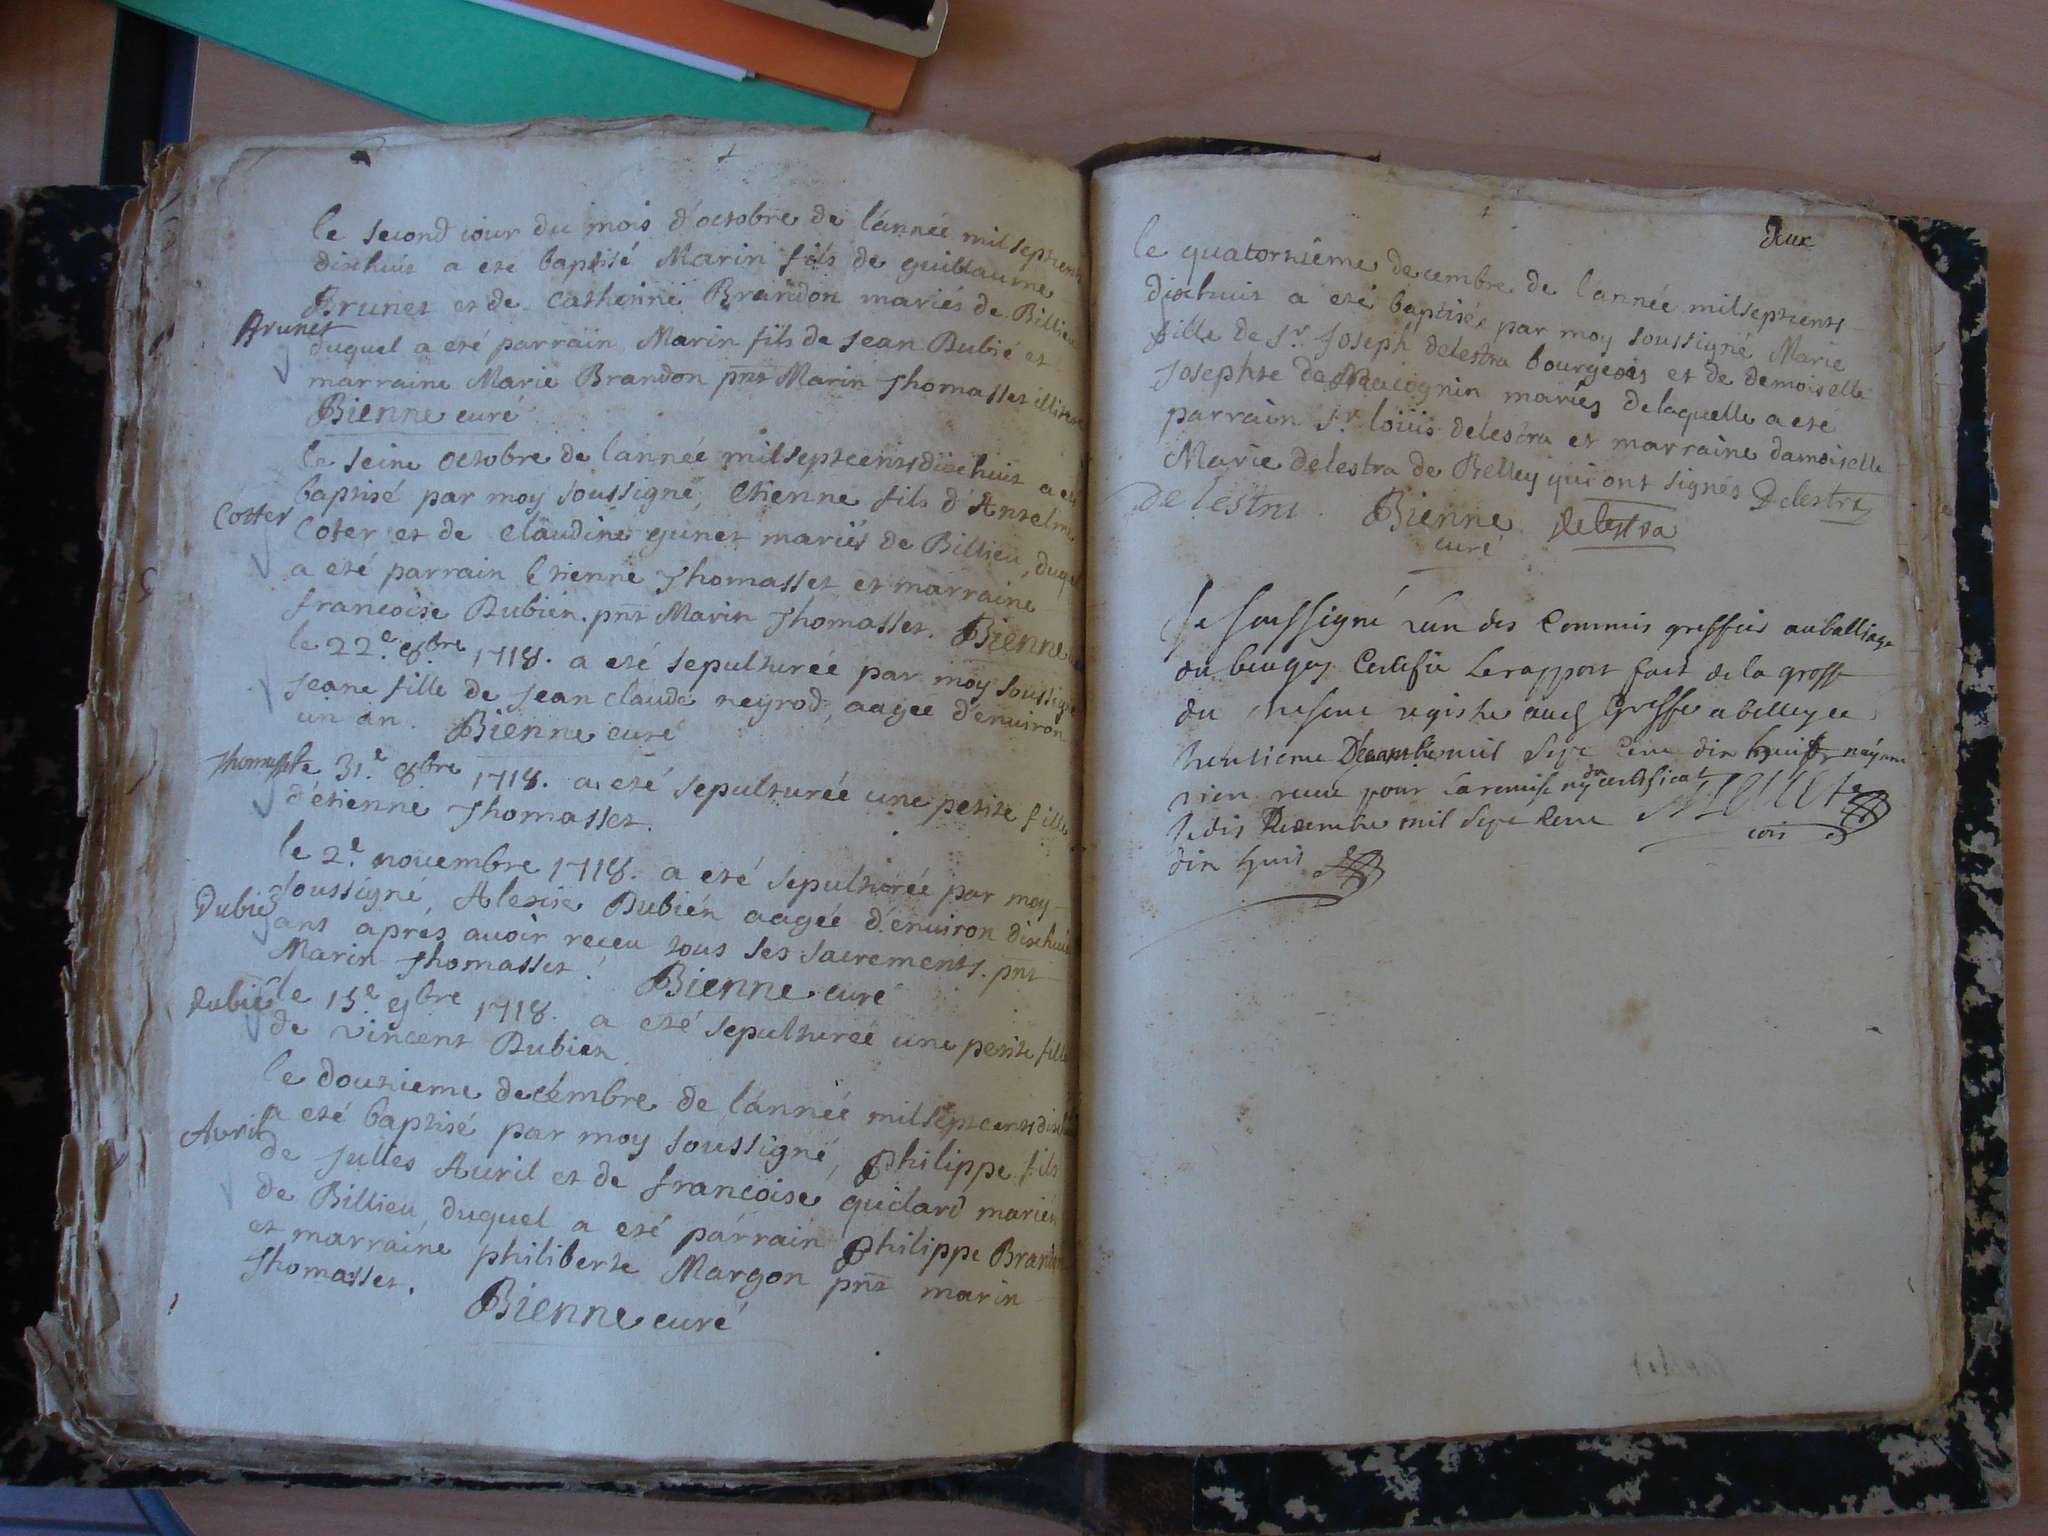 le second iour du mois d'octobre de l'année mil septcents
dixhuit a eté baptisé Marin fils de guillaume
Brunet et de Catherine Brandon mariés de Billieu
Brunet
duquel a eté parrain Marin fils de Jean Dubié et
marraine Marie Brandon pnt Marin Thomasset illiteré
Bienne curé
le seize octobre de l'année mil septcents dixhuit a eté
baptisé par moy soussigné, Etienne fils d'Antelme
Cotter
Coter et de Claudine gunet mariés de Billieu, duquel
a eté parrain Etienne Thomasset et marraine
francoise Dubién. pnt Marin Thomasset. Bienne
le 22e. 8bre 1718. a eté sepulturéé par moy soussigné
Jeane fille de Jean claude neyrod, aagéé d'environ
un an. Bienne curé
le 31e. 8bre 1718. a eté sepulturéé une petite fille
d'etienne Thomasset.
le 2e. novembre 1718. a eté sepulturéé par moy
soussigné, Alexie Dubién aagéé d'environ dixhuit
Dubié
ans aprés avoir receu tous ses sacrements. pnt
Marin Thomasset. Bienne curé
Dubié
le 15e 9bre 1718. a eté sepulturéé une petite fille
de vincent Dubien
le douzieme decembre de l'année mil septcents dixhuit
a eté baptisé par moy soussigné, Philippe fils
Avril
de Julles Avril et de francoise guidard mariés
de Billieu, duquel a eté parrain Philippe Brandon
et marraine philiberte Margon pnt marin
Thomasset.
Bienne curé
deux
le quatorzieme decembre de l'année mil septcents
dixhuit a eté baptiséé par moy soussigné Marie
fille de Sr. Joseph delestra bourgeois et de demoiselle
Josephte de Macognin mariés delaquelle a eté
parrain Sr. loüis delestra et marraine damoiselle
Marie delestra de Belley qui ont signés Delestra
De lestra. Bienne delestra
curé
Je soussigné L'un des Commis greffier au balliage
du bugey Certifie Le rapport fait de la grosse
du present registre au Greffe a belley ce
trentieme Decembre mil sept cent dix huit nayant
rien receu pour la remise ny du certificat
le dis Decembre mil sept cent
dix huit